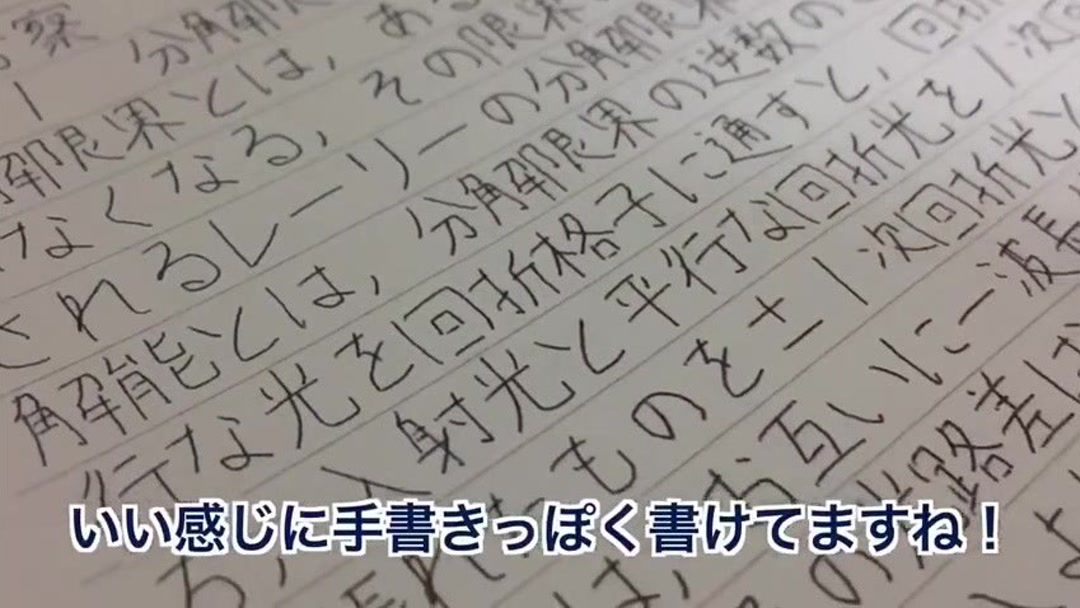 察
1 分解限
解限界とは、ある
なくなる,その限界
されるレーリーの分解限
分解限界の逆数の
解能とは,
行な光を回折格子に通すと,回折
入射光と平行な回折光を1次回
ものを±1次回折光と
お互いに一波長
光路差は
いい感じに手書きっぽく書けてますね！